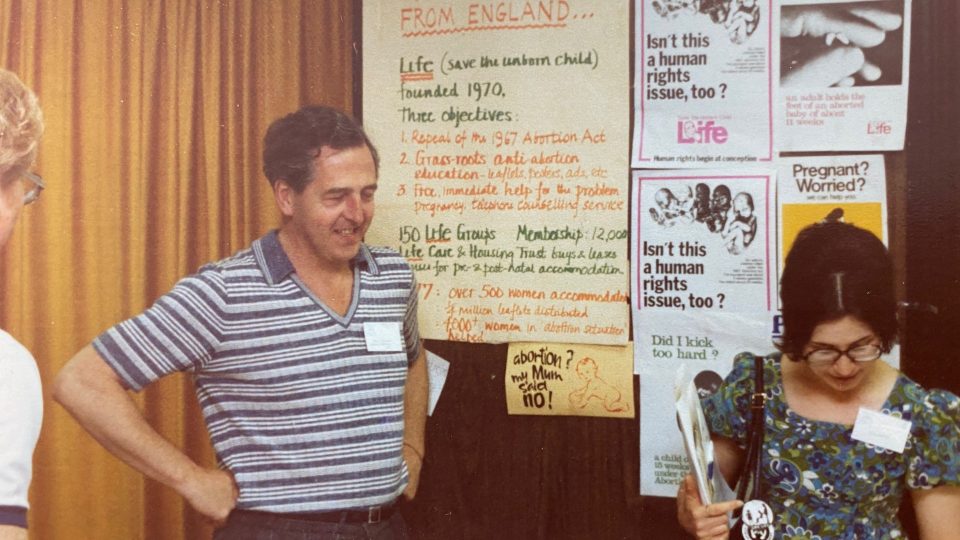 FROM ENGLAND...
Life (save the unborn child)
founded 1970.
Three objectives:
1. Repeal of the 1967 Abortion Act
2. Grass-roots anti abortion
education - leaflets, posters, ads, etc
3 Free, immediate help for the problem
pregnancy, telephone counselling service
150 Life Groups Membership: 12,000
Life Care & Housing Trust buys & leases
for pre- & post-natal accommodation.
7: over 500 women accommodated
million leaflets distributed
women in abortion situation
helped
abortion?
my Mum
said
no!
Isn't this
a human
rights
issue, too?
Life
Human rights begin at conception
an adult holds the
feet of an aborted
baby of about
11 weeks
Life
Isn't this
a human
rights
issue, too?
Pregnant?
Worried?
we can help you
Did I kick
too hard?
a child
15 weeks
under
Aborti